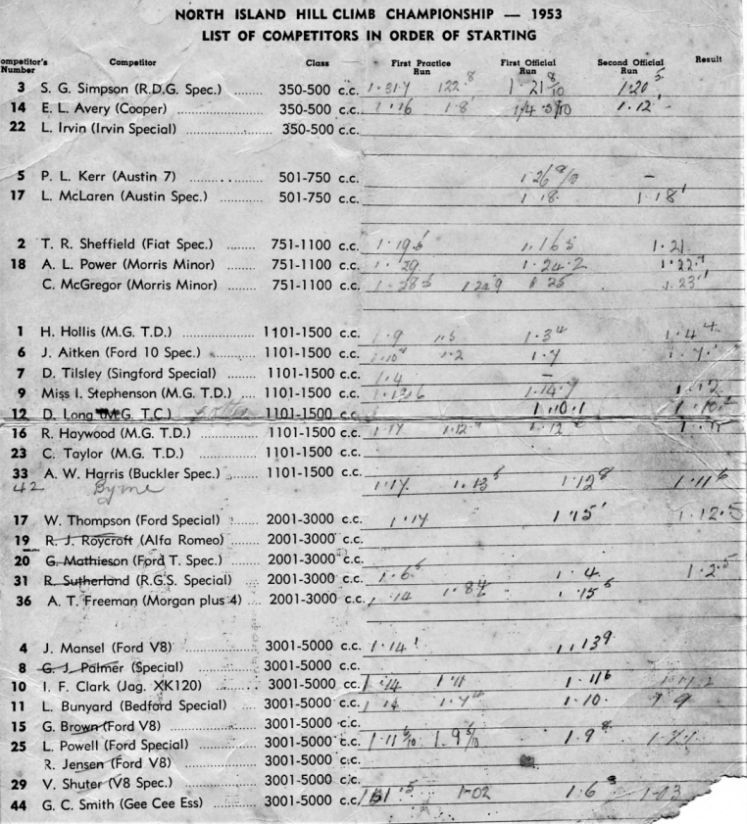 NORTH ISLAND HILL CLIMB CHAMPIONSHIP — 1953
LIST OF COMPETITORS IN ORDER OF STARTING
ompetitor's Number Competitor Class First Practice Run First Official Run Second Official Run Result
3 S. G. Simpson (R.D.G. Spec.) ........ 350-500 c.c. 1·31·4 122·8 1·21 8/10 1·20 5
14 E. L. Avery (Cooper) ........ 350-500 c.c. 1·16 1·8 1·12
22 L. Irvin (Irvin Special) ........ 350-500 c.c.
5 P. L. Kerr (Austin 7) ........ 501-750 c.c. –
17 L. McLaren (Austin Spec.) ........ 501-750 c.c. 1·18 1·18
2 T. R. Sheffield (Fiat Spec.) ........ 751-1100 c.c. 1·16 5 1·21
18 A. L. Power (Morris Minor) ........ 751-1100 c.c. 1·29 1·24·2 1·22
C. McGregor (Morris Minor) ........ 751-1100 c.c. 1·25 1·23
1 H. Hollis (M.G. T.D.) ........ 1101-1500 c.c. 1·9 1·5 1·3 4 1·4 4
6 J. Aitken (Ford 10 Spec.) ........ 1101-1500 c.c. 1·2 1·7
7 D. Tilsley (Singford Special) ........ 1101-1500 c.c. 1·4 –
9 Miss I. Stephenson (M.G. T.D.) .... 1101-1500 c.c. 1·12
12 D. Long (M.G. T.C.) 1101-1500 c.c. 1·10·1
16 R. Haywood (M.G. T.D.) ........ 1101-1500 c.c. 1·17 1·12
23 C. Taylor (M.G. T.D.) ........ 1101-1500 c.c.
33 A. W. Harris (Buckler Spec.) ........ 1101-1500 c.c.
42 Byrne 1·17 1·13 5 1·12 8 1·11 6
17 W. Thompson (Ford Special) ........ 2001-3000 c.c. 1·14 1·15 1·12·5
19 R. J. Roycroft (Alfa Romeo) ........ 2001-3000 c.c.
20 G. Mathieson (Ford T. Spec.) ........ 2001-3000 c.c.
31 R. Sutherland (R.G.S. Special) ........ 2001-3000 c.c. 1·6 1·4 1·2·5
36 A. T. Freeman (Morgan plus 4) .... 2001-3000 c.c. 1·14 1·15 6
4 J. Mansel (Ford V8) ........ 3001-5000 c.c. 1·14 1·13 9
8 G. J. Palmer (Special) ........ 3001-5000 c.c.
10 I. F. Clark (Jag. XK120) ........ 3001-5000 cc. 1·14 1·11 1·11 6
11 L. Bunyard (Bedford Special) ........ 3001-5000 c.c. 1·14 1·7 4 1·10
15 G. Brown (Ford V8) ........ 3001-5000 c.c.
25 L. Powell (Ford Special) ........ 3001-5000 c.c. 1·11 6/10 1·9 5/10 1·9 8
R. Jensen (Ford V8) ........ 3001-5000 c.c.
29 V. Shuter (V8 Spec.) ........ 3001-5000 c.c.
44 G. C. Smith (Gee Cee Ess) ........ 3001-5000 c.c. 1·02 1·6 1·13